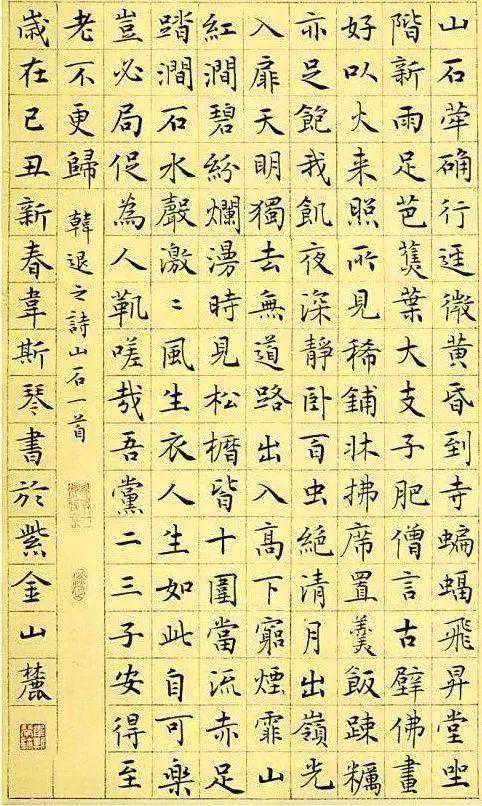 山石犖确行逕微黄昏到寺蝙蝠飛昇堂坐
階新雨足芭蕉葉大支子肥僧言古壁佛畫
好以火来照所見稀鋪牀拂席置羹飯踈糲
亦足飽我飢夜深静卧百虫絶清月出嶺光
入扉天明獨去無道路出入高下窮煙霏山
紅澗碧紛爛漫時見松櫪皆十圍當流赤足
踏澗石水聲激〻風生衣人生如此自可樂
豈必局促為人鞿嗟哉吾黨二三子安得至
老不更歸 韓退之詩山石一首
歳在己丑新春韋斯琴書於紫金山麓